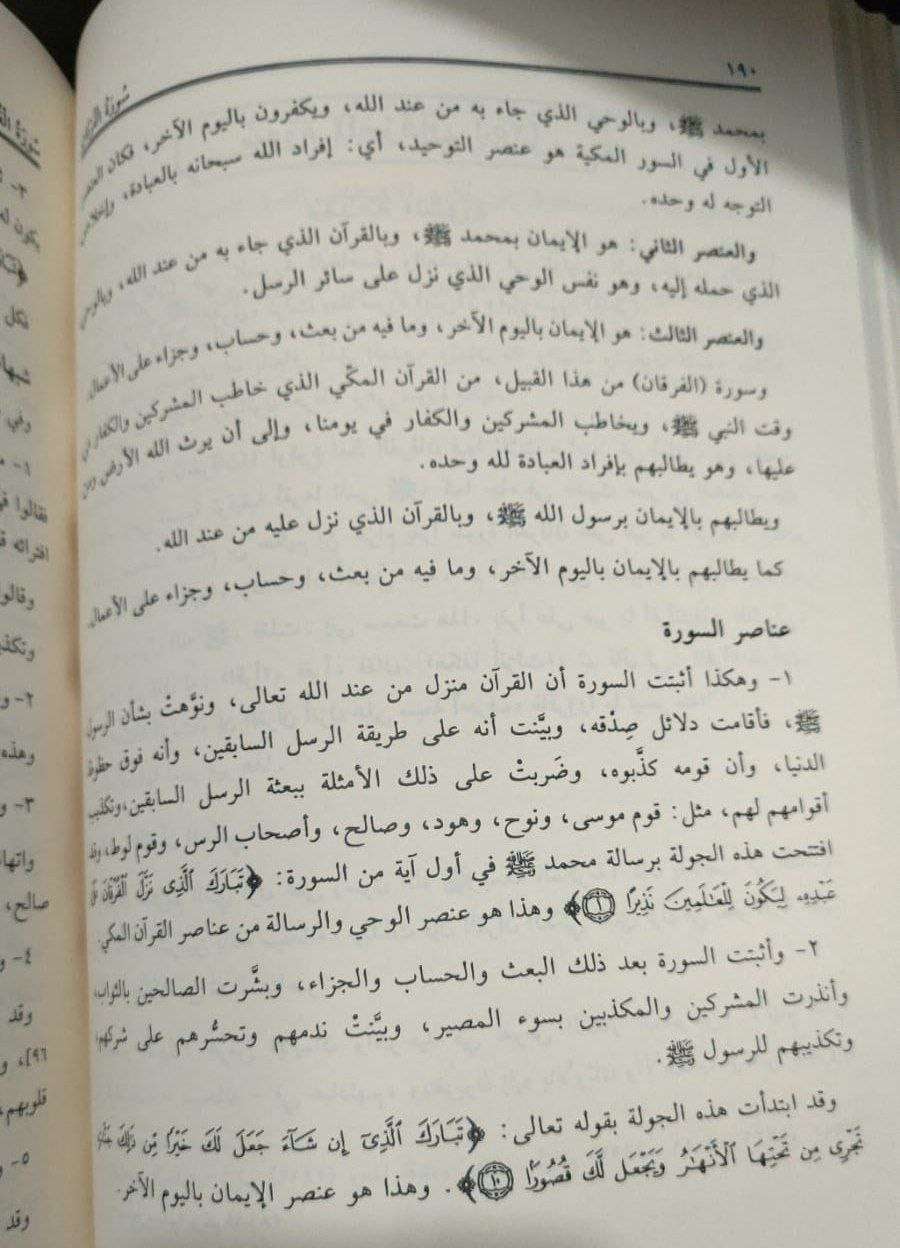 ١٩٠
سُورَةُ
بمحمد ﷺ، وبالوحي الذي جاء به من عند الله، ويكفرون باليوم الآخر، فكان العنصر
الأول في السور المكية هو عنصر التوحيد، أي: إفراد الله سبحانه بالعبادة، وإخلاص
التوجه له وحده.
والعنصر الثاني: هو الإيمان بمحمد ﷺ، وبالقرآن الذي جاء به من عند الله، وبالوحي
الذي حمله إليه، وهو نفس الوحي الذي نزل على سائر الرسل.
والعنصر الثالث: هو الإيمان باليوم الآخر، وما فيه من بعث، وحساب، وجزاء على الأعمال.
وسورة (الفرقان) من هذا القبيل، من القرآن المكّي الذي خاطب المشركين والكفار في
وقت النبي ﷺ، ويخاطب المشركين والكفار في يومنا، وإلى أن يرث الله الأرض ومن
عليها، وهو يطالبهم بإفراد العبادة لله وحده.
ويطالبهم بالإيمان برسول الله ﷺ، وبالقرآن الذي نزل عليه من عند الله.
كما يطالبهم بالإيمان باليوم الآخر، وما فيه من بعث، وحساب، وجزاء على الأعمال.
عناصر السورة
١- وهكذا أثبتت السورة أن القرآن منزل من عند الله تعالى، ونوَّهتْ بشأن الرسول
ﷺ، فأقامت دلائل صِدْقه، وبيَّنت أنه على طريقة الرسل السابقين، وأنه فوق حظوظ
الدنيا، وأن قومه كذَّبوه، وضَربتْ على ذلك الأمثلة ببعثة الرسل السابقين، وتكذيب
أقوامهم لهم، مثل: قوم موسى، ونوح، وهود، وصالح، وأصحاب الرس، وقوم لوط، وقد
افتتحت هذه الجولة برسالة محمد ﷺ في أول آية من السورة: ﴿تَبَارَكَ ٱلَّذِى نَزَّلَ ٱلْفُرْقَانَ عَلَىٰ
عَبْدِهِۦ لِيَكُونَ لِلْعَـٰلَمِينَ نَذِيرًا ١﴾ وهذا هو عنصر الوحي والرسالة من عناصر القرآن المكي.
٢- وأثبتت السورة بعد ذلك البعث والحساب والجزاء، وبشَّرت الصالحين بالثواب،
وأنذرت المشركين والمكذبين بسوء المصير، وبيَّنتْ ندمهم وتحسُّرهم على شركهم
وتكذيبهم للرسول ﷺ.
وقد ابتدأت هذه الجولة بقوله تعالى: ﴿تَبَارَكَ ٱلَّذِىٓ إِن شَآءَ جَعَلَ لَكَ خَيْرًا مِّن ذَٰلِكَ جَنَّـٰتٍ
تَجْرِى مِن تَحْتِهَا ٱلْأَنْهَـٰرُ وَيَجْعَل لَّكَ قُصُورًا ١٠﴾. وهذا هو عنصر الإيمان باليوم الآخر.